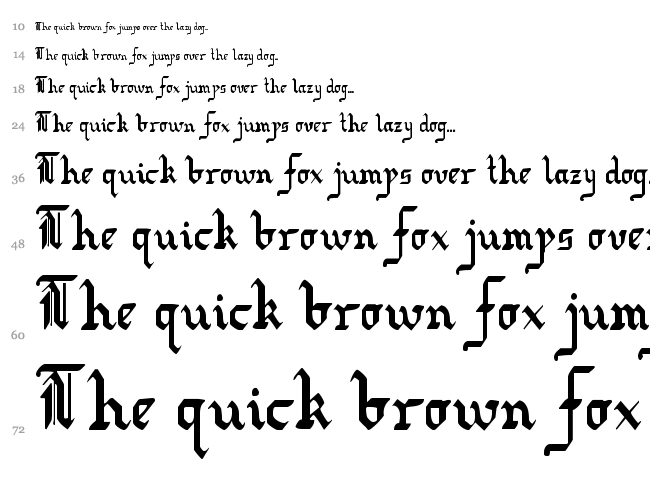 10 The quick brown fox jumps over the lazy dog...
14 The quick brown fox jumps over the lazy dog..
18 The quick brown fox jumps over the lazy dog...
24 The quick brown fox jumps over the lazy dog...
36 The quick brown fox jumps over the lazy dog.
48 The quick brown fox jumps over
60 The quick brown fox jum
72 The quick brown fox